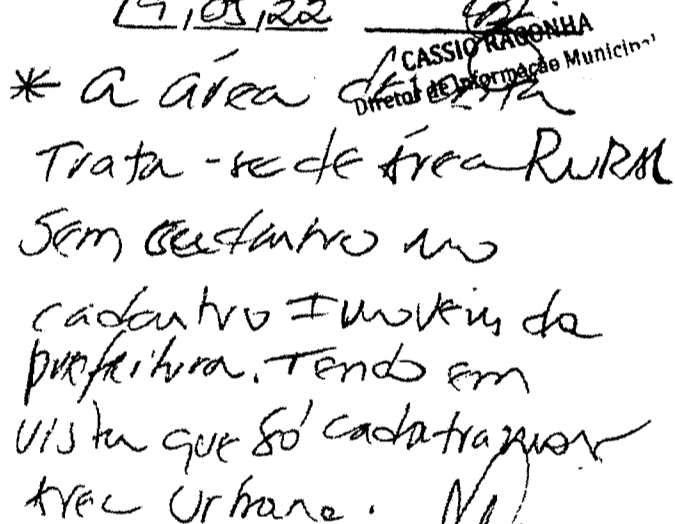 14,05,22
CASSIO RAGONHA
Diretor de Informação Municipal
* a área desta
Trata-se de Área RURAL
Sem cadastro no
cadastro Imoveis da
prefeitura. Tendo em
vista que só cadatramos
Area Urbana.